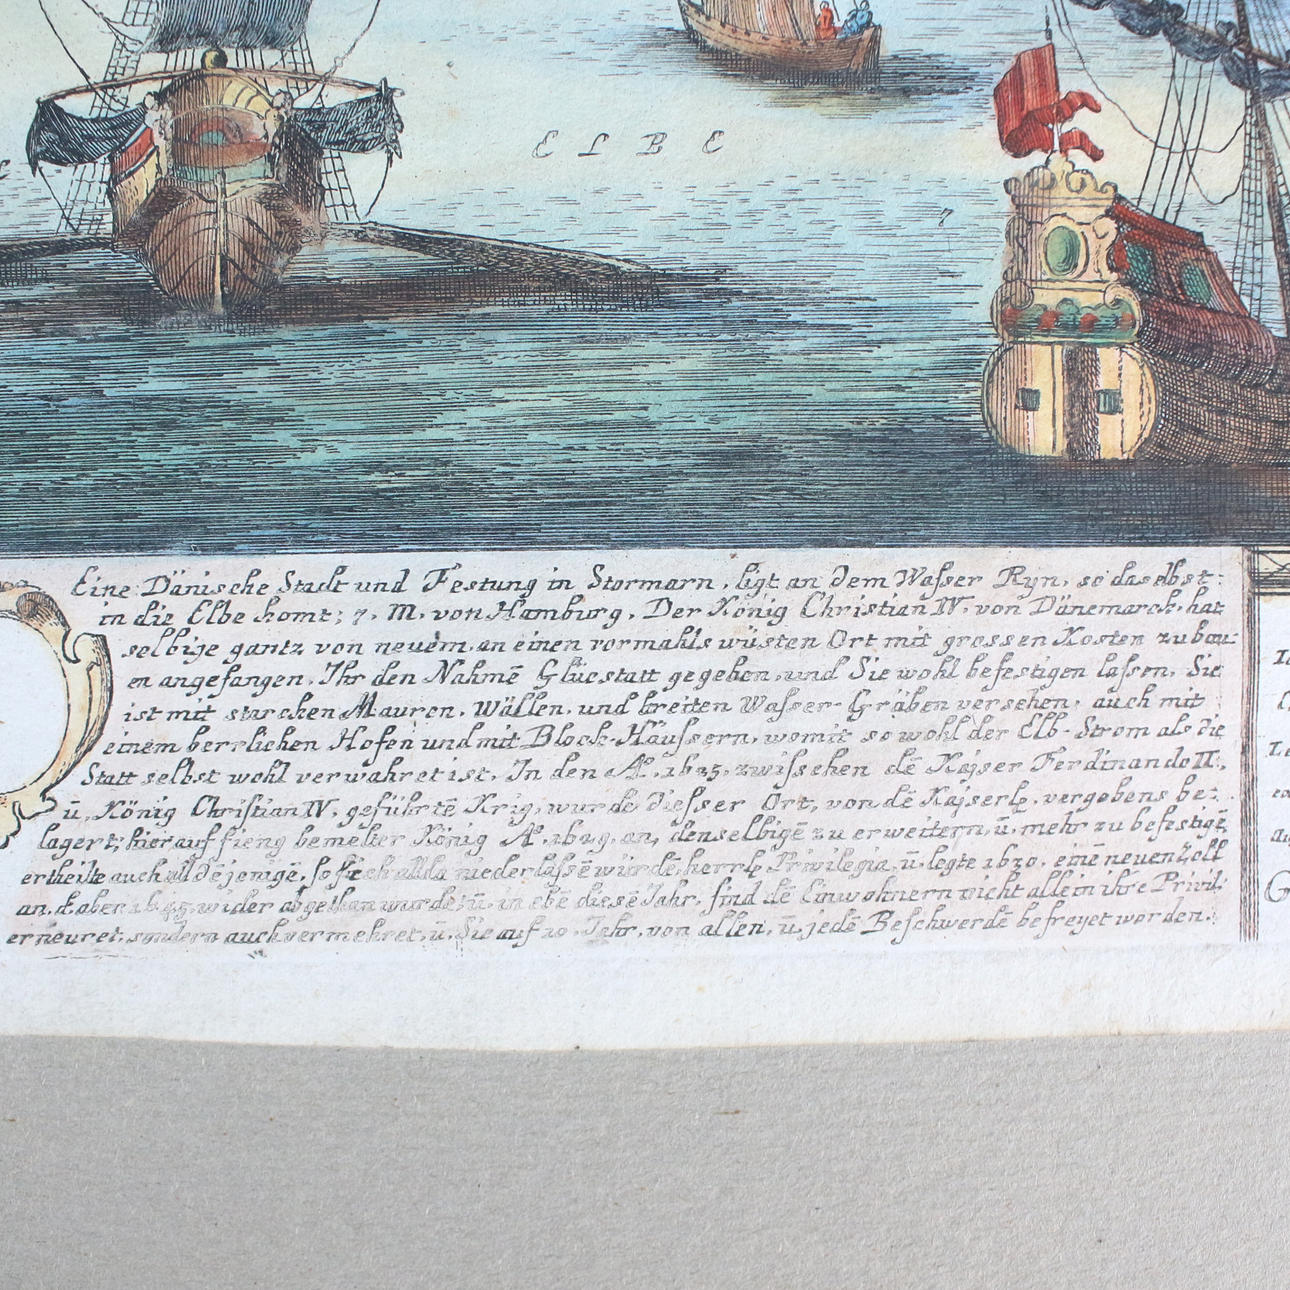 ELBE
7
Eine Dänische Stadt und Festung in Stormarn, ligt an dem Wasser Ryn, so daselbst
in die Elbe komt; 7. M. von Hamburg. Der König Christian IV. von Dänemarck, hat
selbige gantz von neuem, an einen vormahls wüsten Ort mit grossen Kosten zu bau-
en angefangen, Ihr den Nahmē Glücstatt gegeben, und Sie wohl befestigen lassen. Sie
ist mit starcken Mauren, Wällen, und breiten Wasser-Gräben versehen, auch mit
einem herrlichen Hafen und mit Block-Häussern, womit so wohl der Elb-Strom als die
Statt selbst wohl verwahret ist. In den Aº. 1625. zwischen dē Kayser Ferdinando II.
ū. König Christian IV. geführtē Krig, wurde diesser Ort, von dē Kayserl. vergebens be-
lagert; hierauf fieng bemelter König Aº. 1629. an, denselbigē zu erweitern, ū. mehr zu befestigē,
ertheilte auch all dējenigē, so sich allda niederlassē würdē, herrl. Privilegia, ū. legte 1630. einē neuen Zoll
an. d. aber 1645. wider abgethan wurde; ū. in ebē diesē Jahr, sind dē Einwohnern nicht allein ihre Privil.
erneuret, sondern auch vermehret, ū. Sie auf 20. Jahr, von allen, ū. jedē Beschwerdē befreyet worden.